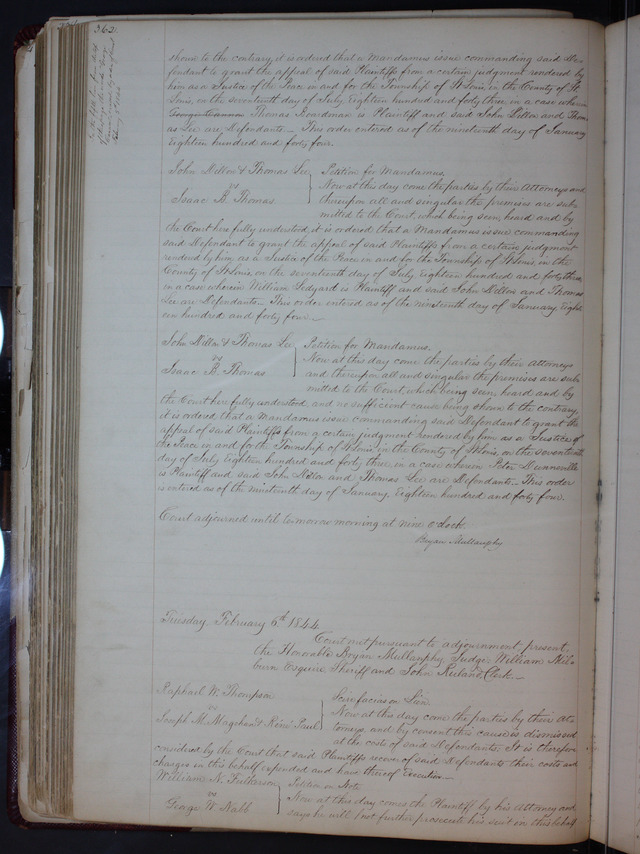 362.
shown to the contrary, it is ordered that a Mandamus issue commanding said De
fendant to grant the appeal of said Plaintiffs from a certain judgment rendered by
him as a Justice of the Peace in and for the Township of St Louis, in the County of St
Louis, on the seventeenth day of July Eighteen hundred and forty three, in a case wherein
Thomas Boardman is Plaintiff and said John Dillon and Thom
as Lee are Defendants.— This order entered as of the nineteenth day of January
Eighteen hundred and forty four.
John Dillon & Thomas Lee
vs
Isaac B. Thomas
Petition for Mandamus.
Now at this day come the parties by their Attorneys and
thereupon all and singular the premises are sub
mitted to the Court, which being seen, heard and by
the Court here fully understood, it is ordered that a Mandamus issue commanding
said Defendant to grant the appeal of said Plaintiffs from a certain judgment
rendered by him as a Justice of the Peace in and for the Township of St Louis, in the
County of St Louis, on the seventeenth day of July Eighteen hundred and forty three,
in a case wherein William Ledyard is Plaintiff and said John Dillon and Thomas
Lee are Defendants. This order entered as of the nineteenth day of January, Eight
een hundred and forty four.—
John Dillon & Thomas Lee
vs
Isaac B. Thomas
Petition for Mandamus.
Now at this day come the parties by their Attorneys
and thereupon all and singular the premises are sub
mitted to the Court, which being seen, heard and by
the Court here fully understood and no sufficient cause being shown to the contrary,
it is ordered that a Mandamus issue commanding said Defendant to grant the
appeal of said Plaintiffs from a certain judgment rendered by him as a Justice of
the Peace in and for the Township of St Louis, in the County of St Louis, on the seventeenth
day of July Eighteen hundred and forty three, in a case wherein Peter
is Plaintiff and said John Dillon and Thomas Lee are Defendants.— This order
is entered as of the nineteenth day of January, Eighteen hundred and forty four.
Court adjourned until tomorrow morning at nine o'clock.
Bryan Mullanphy
Tuesday February 6th 1844.
Court met pursuant to adjournment, present,
the Honorable Bryan Mullanphy, Judge, William Mil
burn Esquire, Sheriff and John Ruland, Clerk.—
Raphael W. Thompson
vs
Joseph M. & René Paul
Scire facias on Lien
Now at this day come the parties by their At
torneys, and by consent this cause is dismissed
at the costs of said Defendants. It is therefore
considered by the Court that said Plaintiffs recover of said Defendants their costs and
charges in this behalf expended and have thereof Execution.—
William N. Fulkerson
vs
George W. Nabb
Petition on Note
Now at this day comes the Plaintiff by his Attorney and
says he will not further prosecute his suit in this behalf